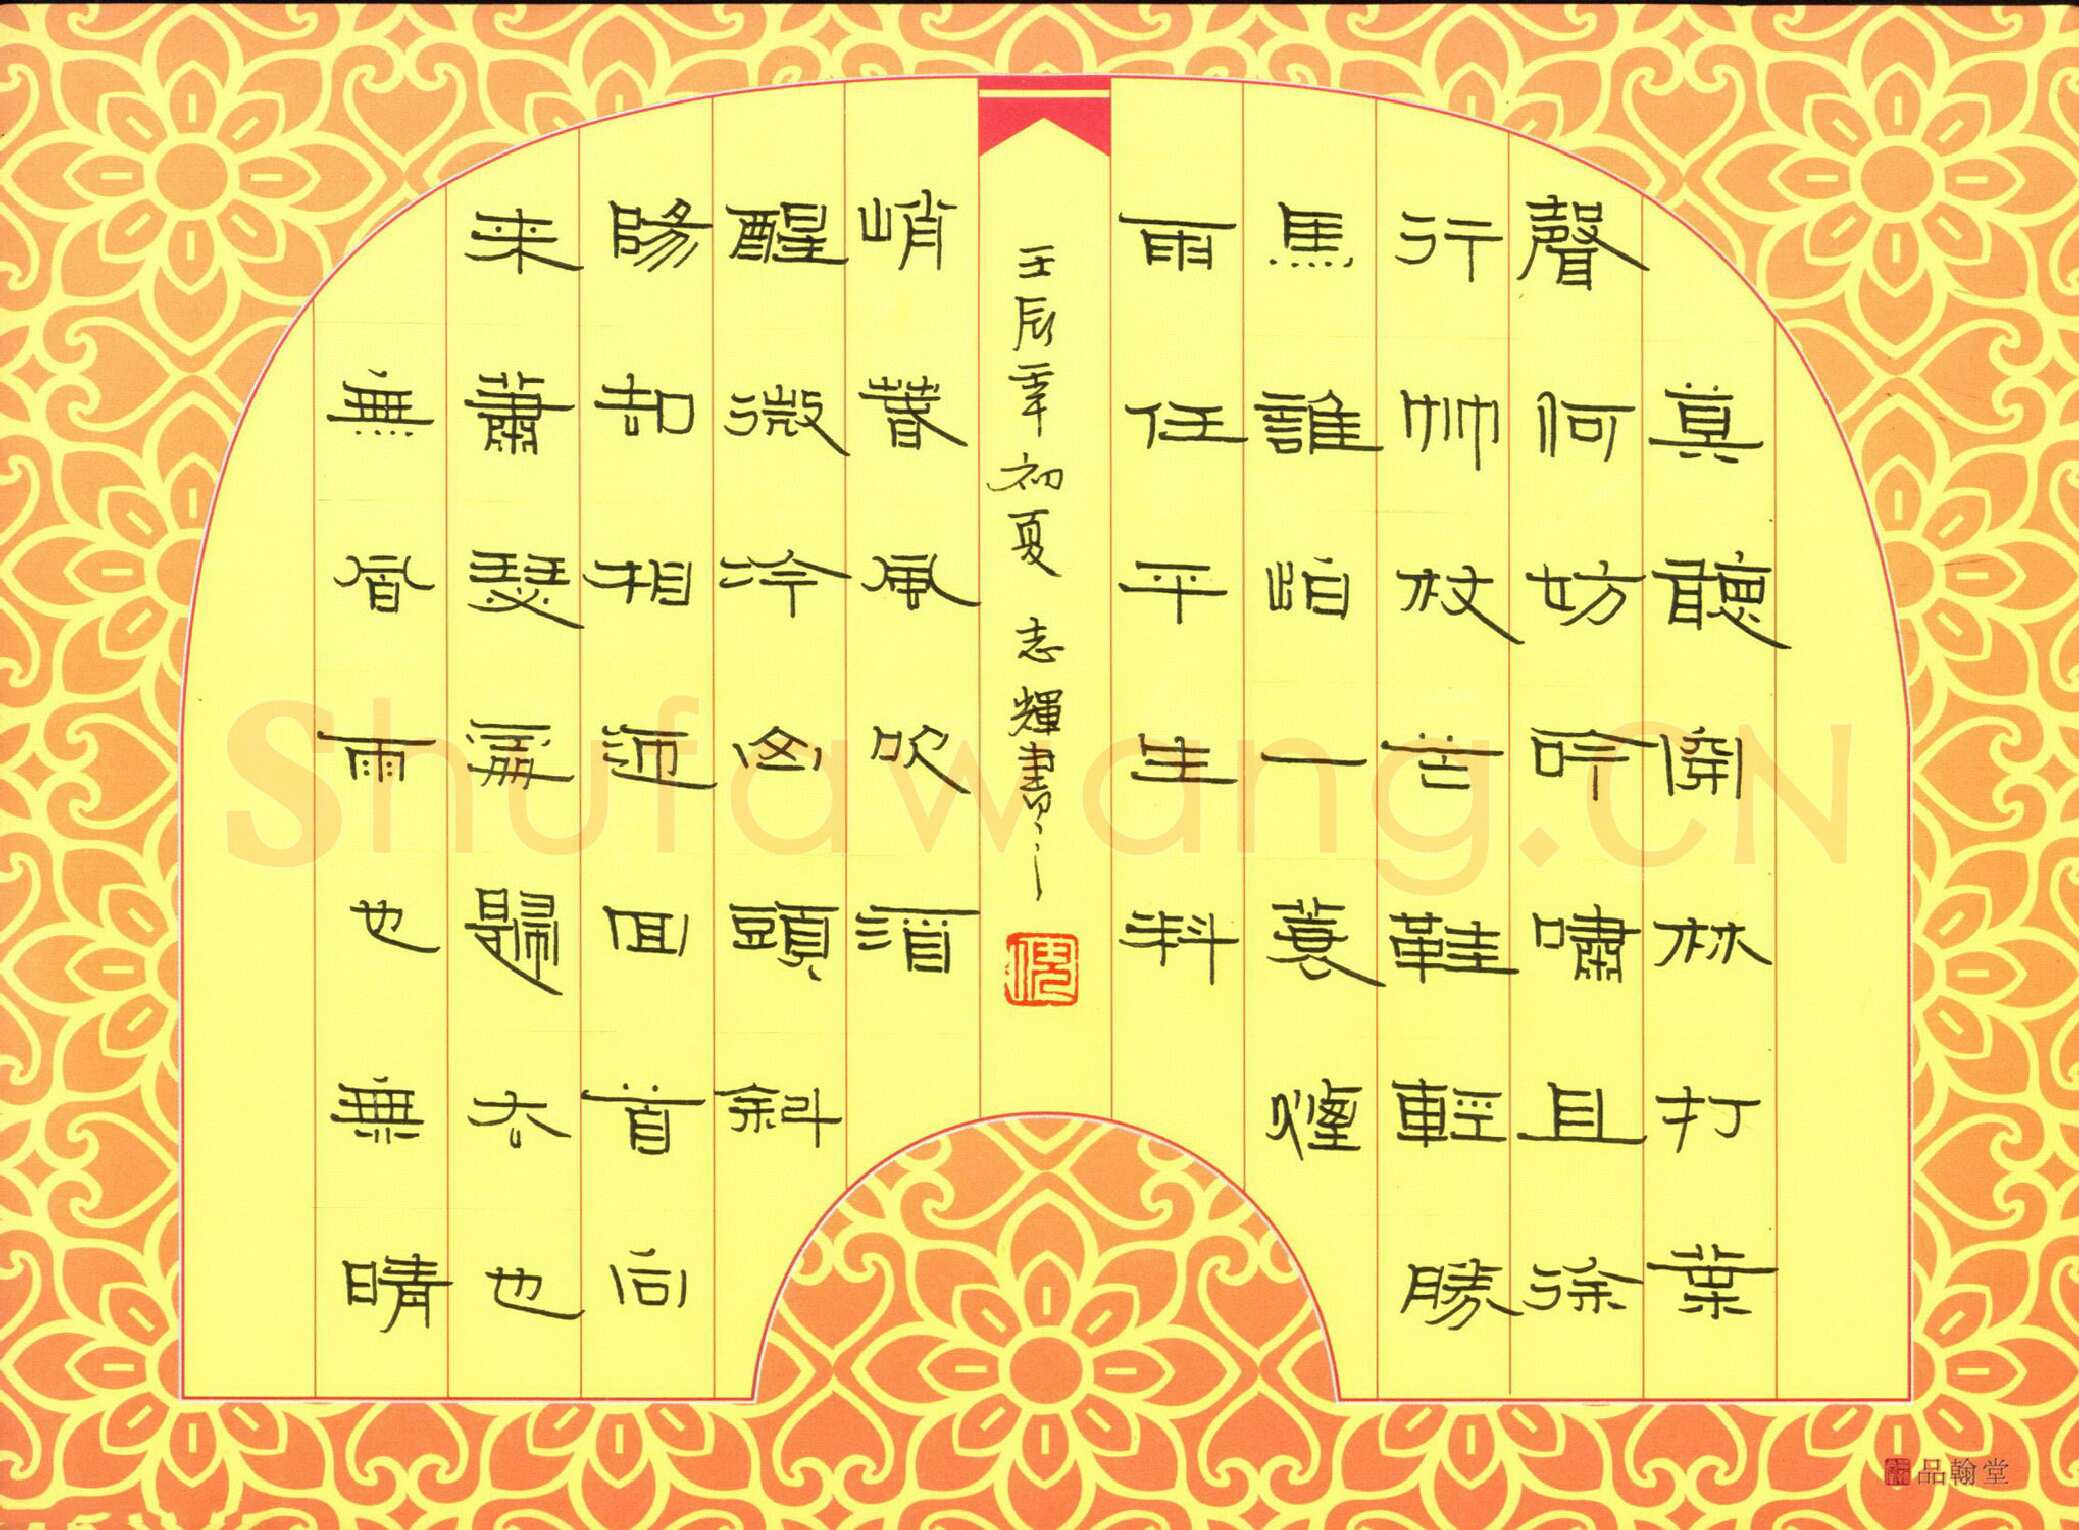 莫聽穿林打葉
聲何妨吟嘯且徐
行竹杖芒鞋輕勝
馬誰怕一蓑煙
雨任平生料
壬辰年初夏 志輝書之
峭春風吹酒
醒微冷山頭斜
陽却相迎回首向
来蕭瑟處歸去也
無風雨也無晴
Shufawang.CN
品翰堂